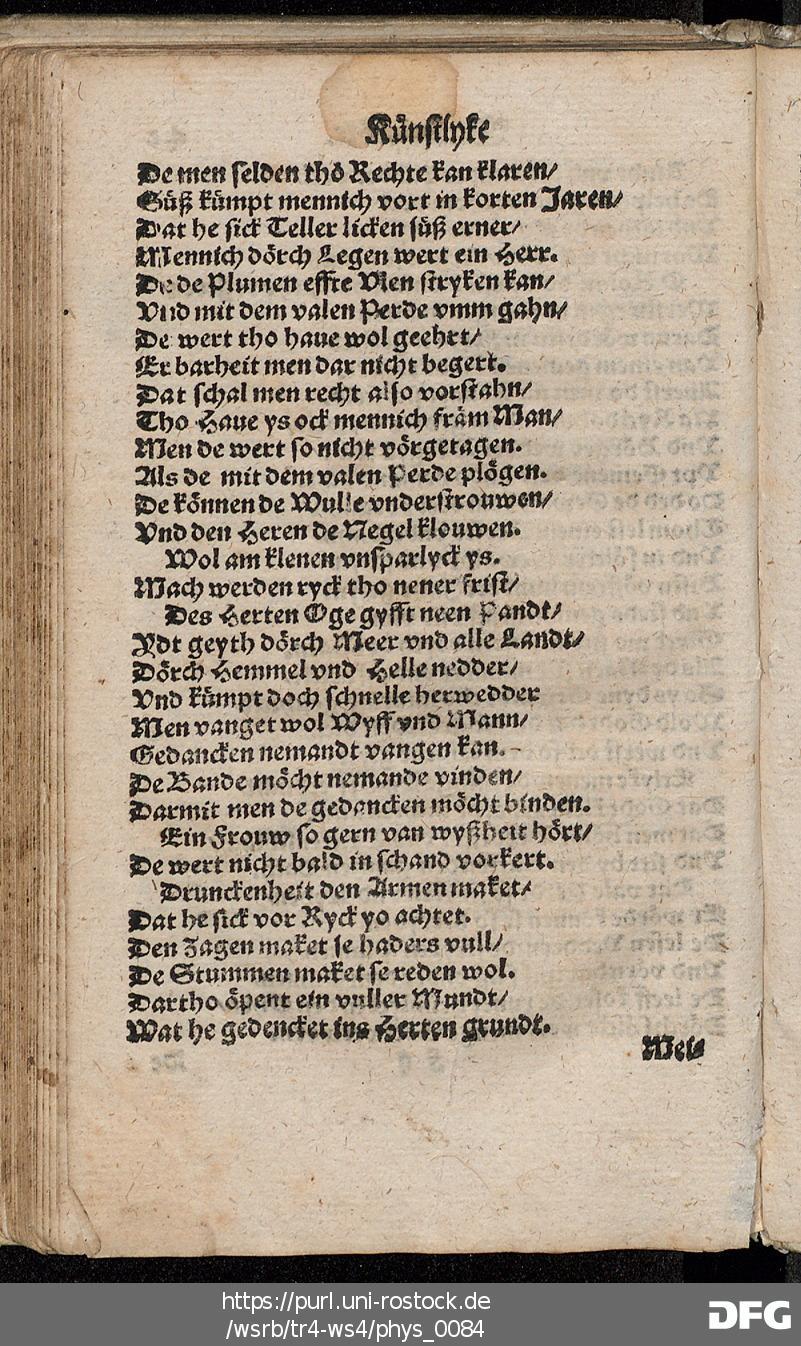 Künstlyke
De men selden thö Rechte kan klaren/
Süß kümpt mennich vort in korten Jaren/
Dat he sick Teller licken süß erner/
Mennich dörch Legen wert ein Herr.
De de Plumen effte Vlen stryken kan/
Vnd mit dem valen Perde vmm gahn/
De wert tho haue wol geehrt/
Erbarheit men dar nicht begert.
Dat schal men recht also vorstahn/
Tho Haue ys ock mennich främ Man/
Men de wert so nicht vörgetagen.
Als de mit dem valen Perde plögen.
De können de Wulle vnderstrouwen/
Vnd den Heren de Negel klouwen.
Wol am klenen vnsparlyck ys.
Mach werden ryck tho nener frist/
Des Herten Oge gyfft neen Pandt/
Ydt geyth dörch Meer vnd alle Landt/
Dörch Hemmel vnd Helle nedder/
Vnd kümpt doch schnelle herwedder
Men vanget wol Wyff vnd Mann/
Gedancken nemandt vangen kan.
De Bande möcht nemande vinden/
Darmit men de gedancken möcht binden.
Ein Frouw so gern van wyßheit hört/
De wert nicht bald in schand vorkert.
Drunckenheit den Armen maket/
Dat he sick vor Ryck yo achtet.
Den Zagen maket se haders vull/
De Stummen maket se reden wol.
Dartho öpent ein vuller Mundt/
Wat he gedencket ins Herten grundt.
Wel⸗
https://purl.uni-rostock.de
/wsrb/tr4-ws4/phys_0084
DFG